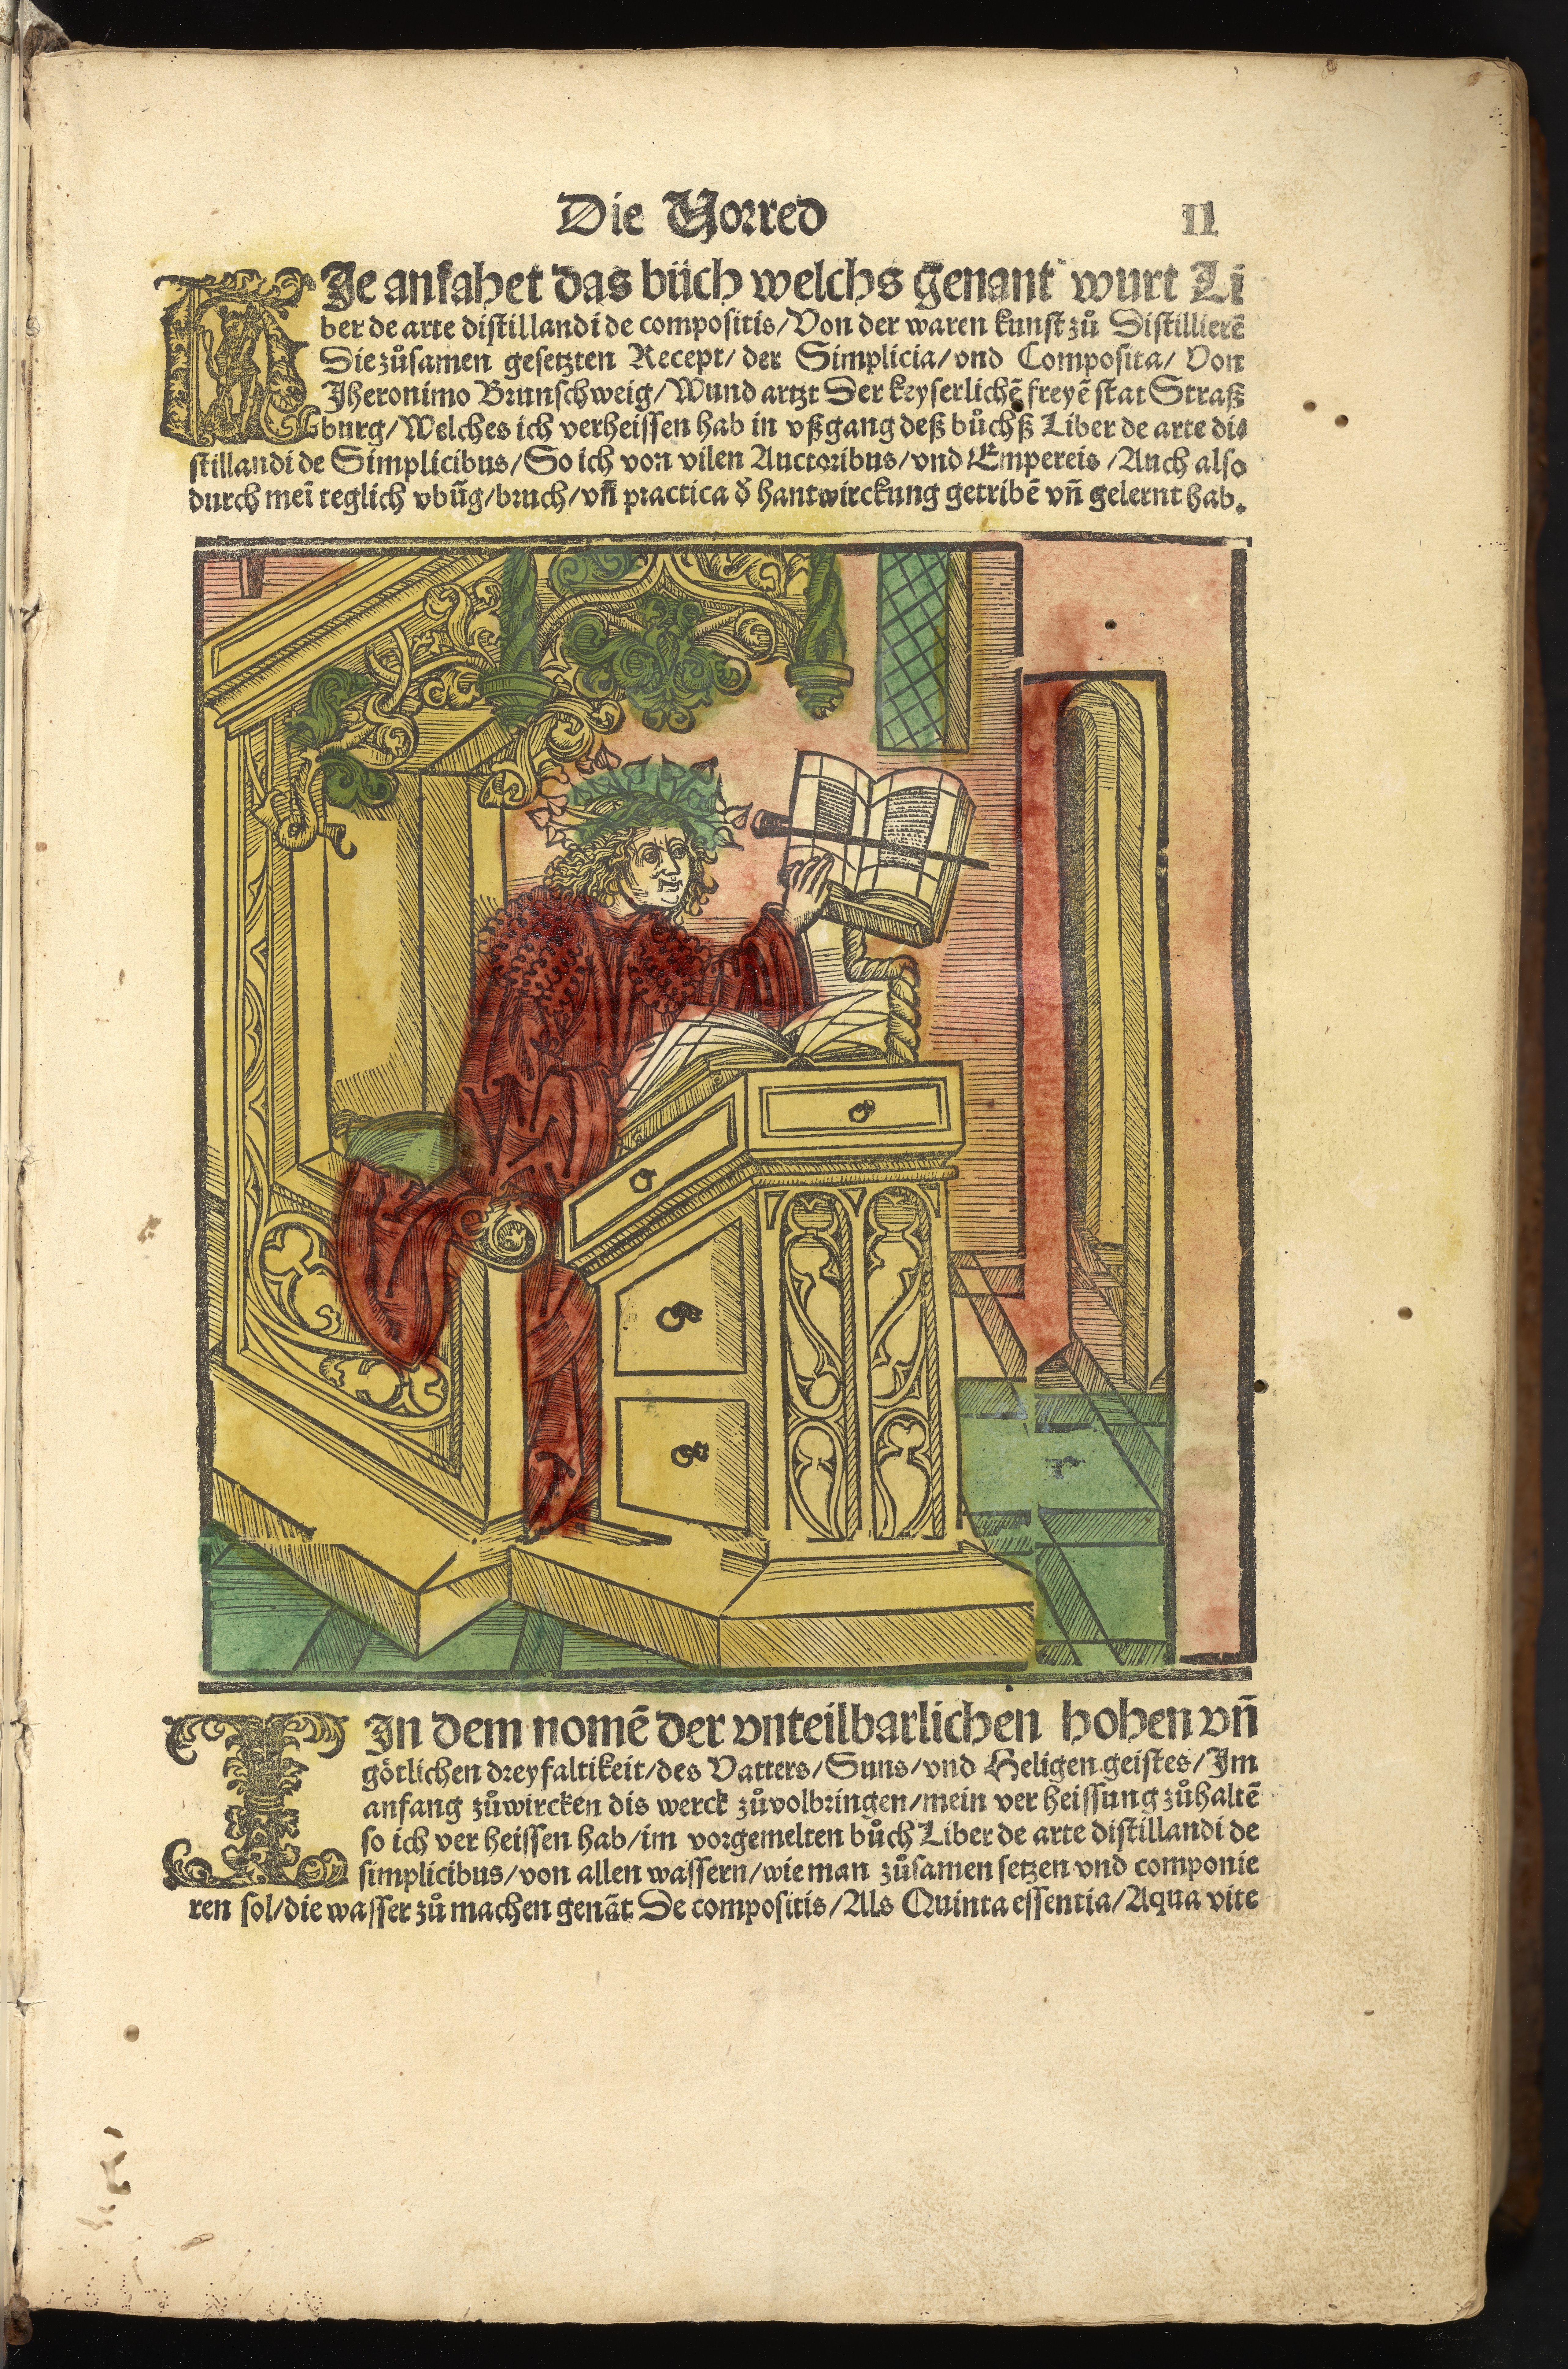 Die Vorred II
HIe anfahet das büch welchs genant wurt Li
ber de arte distillandi de compositis/Von der waren kunst zů Distillierẽ
Die zůsamen gesetzten Recept/ der Simplicia/vnd Composita/ Von
Jheronimo Brunschweig/Wund artzt Der keyserlichẽ freyẽ stat Straß
burg/Welches ich verheissen hab in vßgang deß bůchß Liber de arte di⸗
stillandi de Simplicibus/So ich von vilen Auctoribus/vnd Empereis/Auch also
durch meĩ teglich vbũg/bruch/vñ practica d̓ hantwirckung getribẽ vñ gelernt hab.
IIn dem nomẽ der vnteilbarlichen hohen vñ
götlichen dreyfaltikeit/des Vatters/Suns/vnd Heligen geistes/Im
anfang zůwircken dis werck zůvolbringen/mein ver heissung zůhaltẽ
so ich ver heissen hab/im vorgemelten bůch Liber de arte distillandi de
simplicibus/von allen wassern/wie man zůsamen setzen vnd componie
ren sol/die wasser zů machen genãt De compositis/Als Quinta essentia/Aqua vite